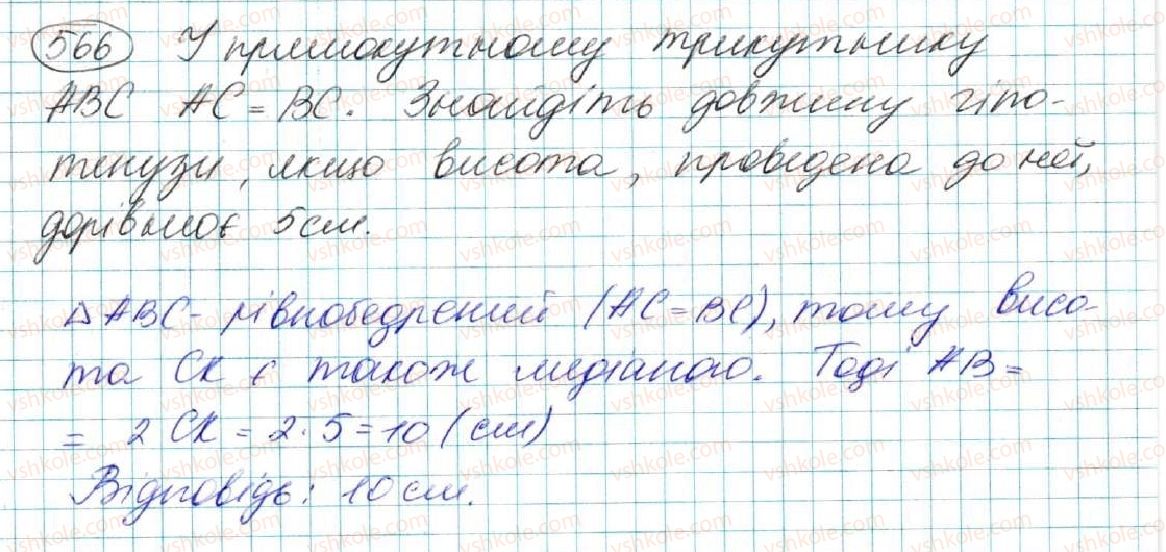 566 У прямокутному трикутнику
ABC AC = BC. Знайдіть довжину гіпо-
тенузи, якщо висота, проведена до неї,
дорівнює 5 см.
Δ ABC - рівнобедрений (AC = BC), тому висо-
та CK є також медіаною. Тоді AB =
= 2 CK = 2 · 5 = 10 (см)
Відповідь: 10 см.
vshkole.com